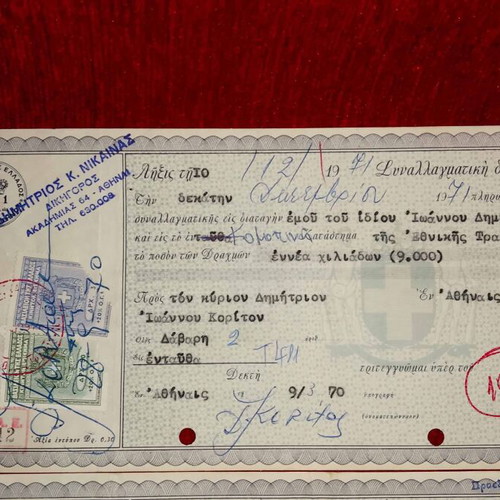 ΕΛΛΑΔΟΣ
ΔΗΜΗΤΡΙΟΣ Κ. ΝΙΚΑΙΝΑΣ
ΔΙΚΗΓΟΡΟΣ
ΑΚΑΔΗΜΙΑΣ 64 - ΑΘΗΝΑΙ
ΤΗΛ. 630.008
Λῆξις τῇ 10 /12/ 1971 Συναλλαγματικὴ δ
Τὴν δεκάτην Δεκεμβρίου 1971 πληρώ
συναλλαγματικῆς εἰς διαταγὴν ἐμοῦ τοῦ ἰδίου Ἰωάννου Δημ
καὶ εἰς τὸ ἐνταῦθα κατάστημα τῆς Ἐθνικῆς Τρα
τὸ ποσὸν τῶν Δραχμῶν ἐννέα χιλιάδων (9,000)
Πρὸς τὸν κύριον Δημήτριον Ἐν Ἀθήναις
Ἰωάννου Κορίτον
ὁδὸς Δάβαρη 2 ἀριθ.
ἐνταῦθα τριτεγγυῶμαι ὑπὲρ τοῦ
Δεκτὴ
Ἀθήναις 9/3 70
Ἀξία ἐντύπου Δρ. 0,50